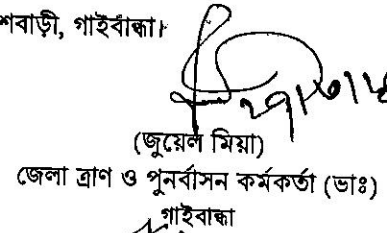 শবাড়ী, গাইবান্ধা।
(জুয়েল মিয়া)
জেলা ত্রাণ ও পুনর্বাসন কর্মকর্তা (ভাঃ)
গাইবান্ধা